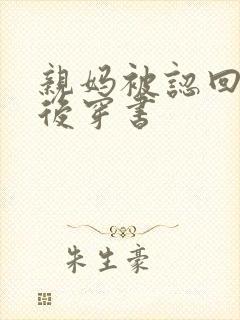 親媽被認回
後穿書
朱生豪